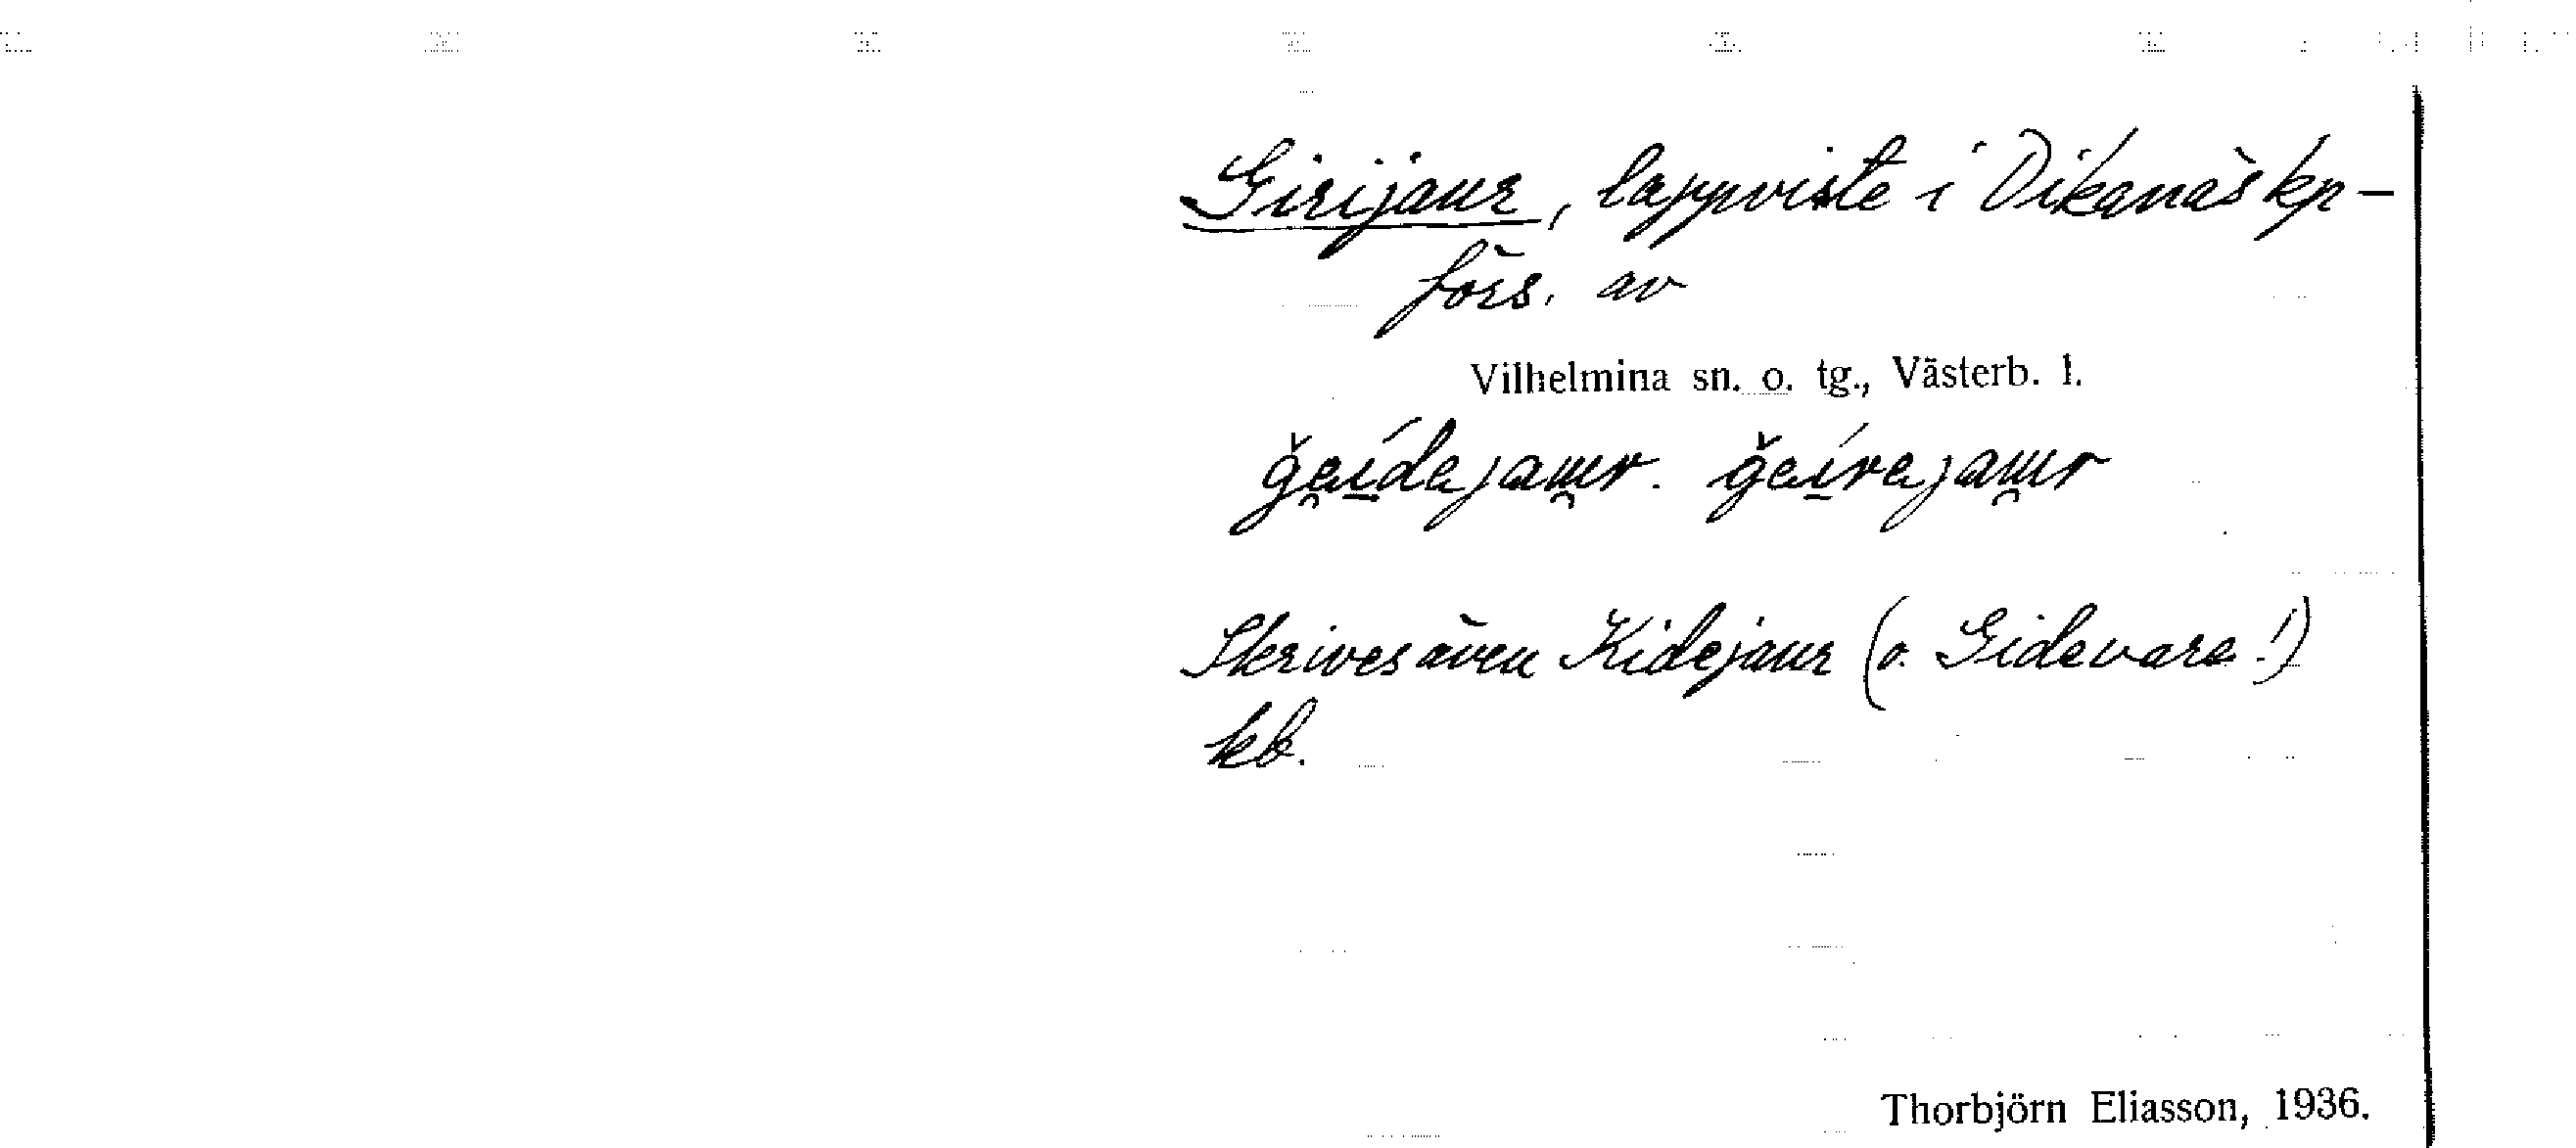 Girijaur, lappviste i Dikanäs kp-
förs. av
Vilhelmina sn. o. tg., Västerb. l.
ğęídejaur. ğeírejaur
Skrives även Kidejaur (o. Gidevare!)
kb.
Thorbjörn Eliasson, 1936.